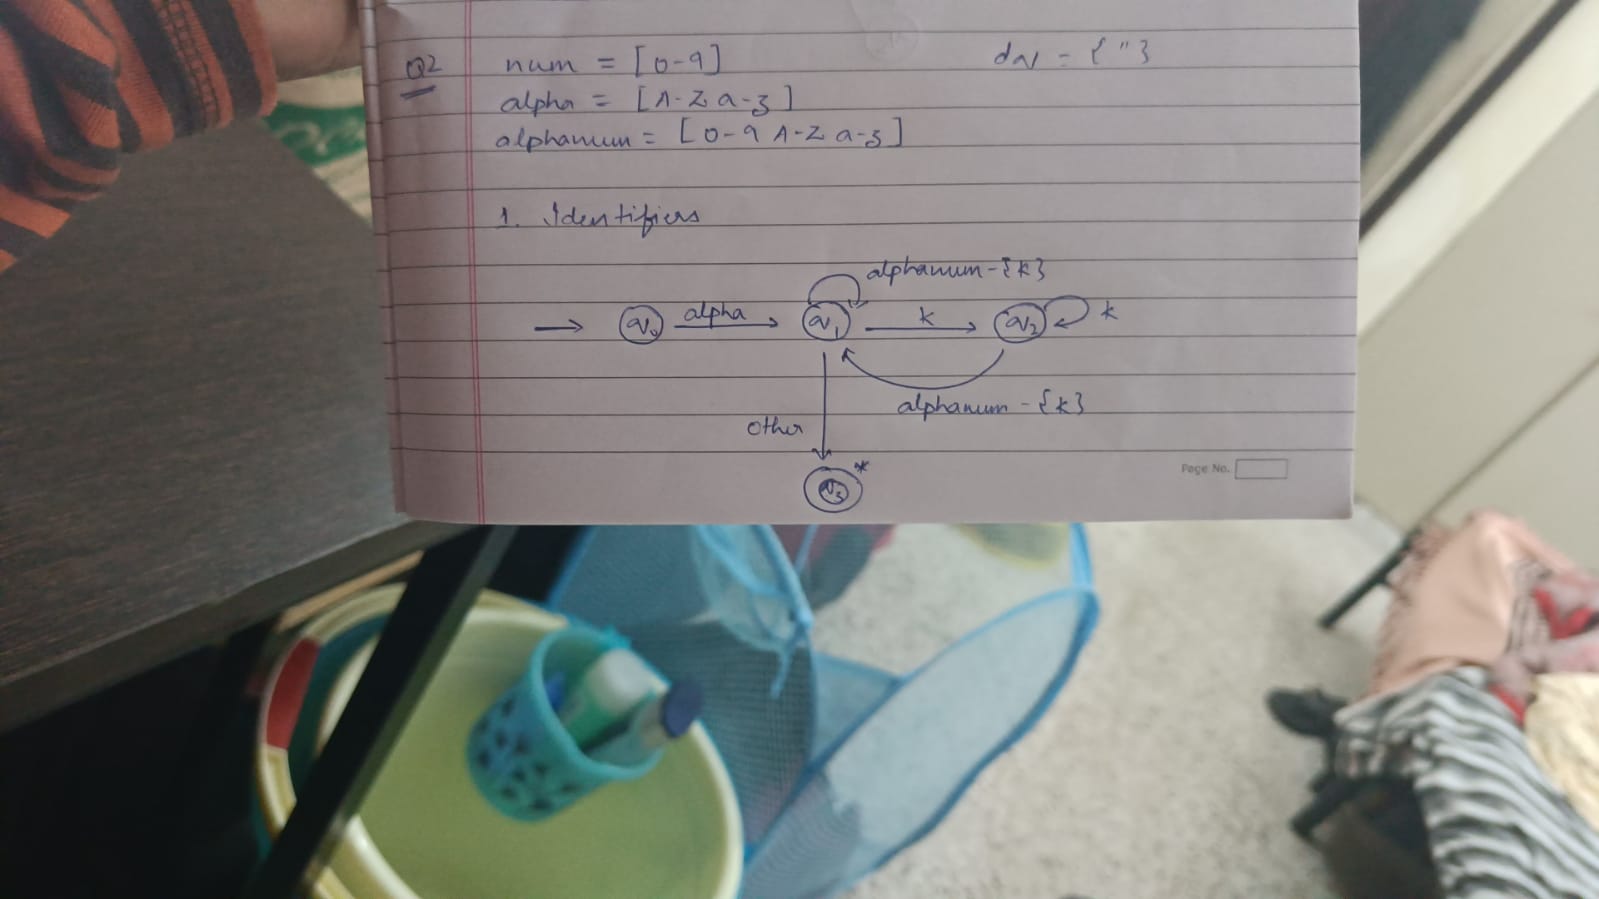 Q2 num = [0-9] dq = { " }
alpha = [A-Z a-z]
alphanum = [0-9 A-Z a-z]
1. Identifiers
alphanum-{k}
q0 alpha q1 k q2 k
alphanum - {k}
other
q3 *
Page No.